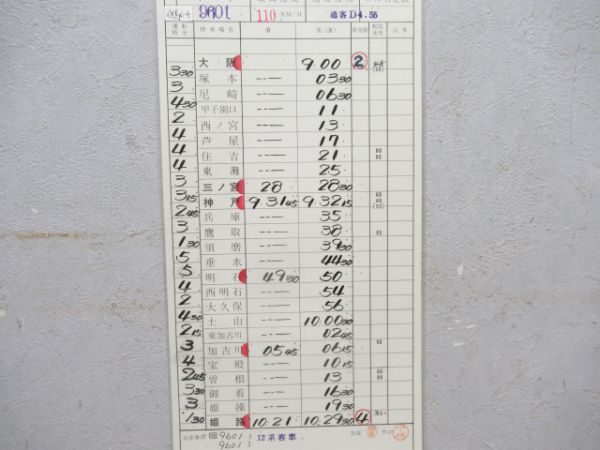 9601 110 KM/H 通客D4.55
運転時分 停車場名 着 発(通) 着発線 制限速度 記事
大阪 9.00 2 45
3 30 塚本 --- 03 30
3 尼崎 --- 06 30
4 30 甲子園口 --- 11
2 西ノ宮 --- 13
4 芦屋 --- 17
4 住吉 --- 21 60
4 東灘 --- 25
3 三ノ宮 28 28 30
3 15 神戸 9.31 45 9.32 15
2 45 兵庫 --- 35
3 鷹取 --- 38
1 30 須磨 --- 39 30
5 垂水 --- 44 30
5 明石 49 30 50
4 西明石 --- 54
2 大久保 --- 56
4 30 土山 --- 10.00 30
2 15 東加古川 --- 02 45
3 加古川 05 45 06 15
4 宝殿 --- 10 15
2 45 曽根 --- 13
3 30 御着 --- 16 30
3 姫操 --- 19 30
1 30 姫路 10.21 10.29 30 4
9601 12系客車
9601